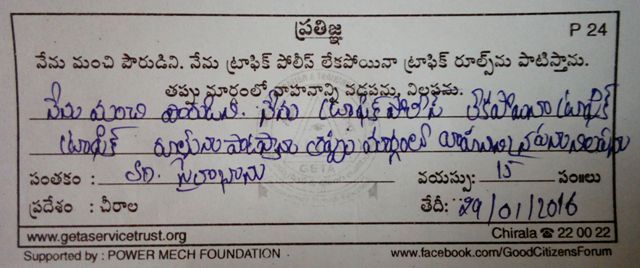 ప్రతిజ్ఞ P 24
నేను మంచి పౌరుడిని. నేను ట్రాఫిక్ పోలీస్ లేకపోయినా ట్రాఫిక్ రూల్స్‌ను పాటిస్తాను.
తప్పు మార్గంలో వాహనాన్ని నడపను, నిలపను.
నేను మంచి పౌరుడిని. నేను ట్రాఫిక్ పోలీస్ లేకపోయినా ట్రాఫిక్
ట్రాఫిక్ రూల్సును పాటిస్తాను తప్పు మార్గంలో
సంతకం : వయస్సు: 15 సం॥లు
ప్రదేశం : చీరాల తేదీ: 29/01/2016
www.getaservicetrust.org Chirala ☎ 22 00 22
Supported by : POWER MECH FOUNDATION www.facebook.com/GoodCitizensForum